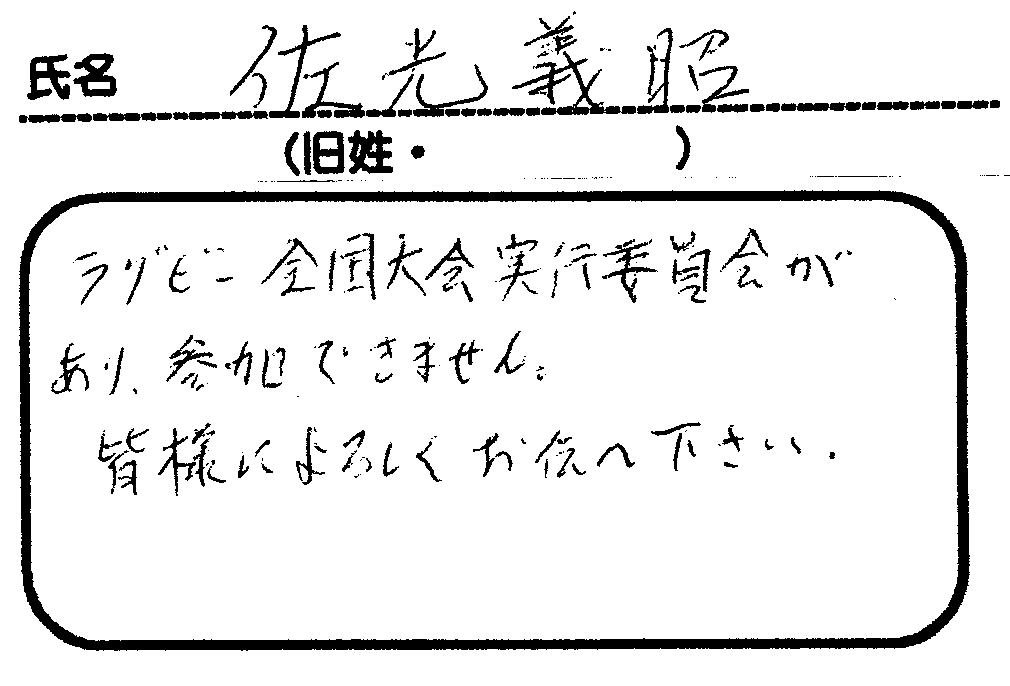 氏名 佐光義昭
(旧姓・ )
ラグビー全国大会実行委員会が
あり、参加できません。
皆様によろしくお伝へ下さい.